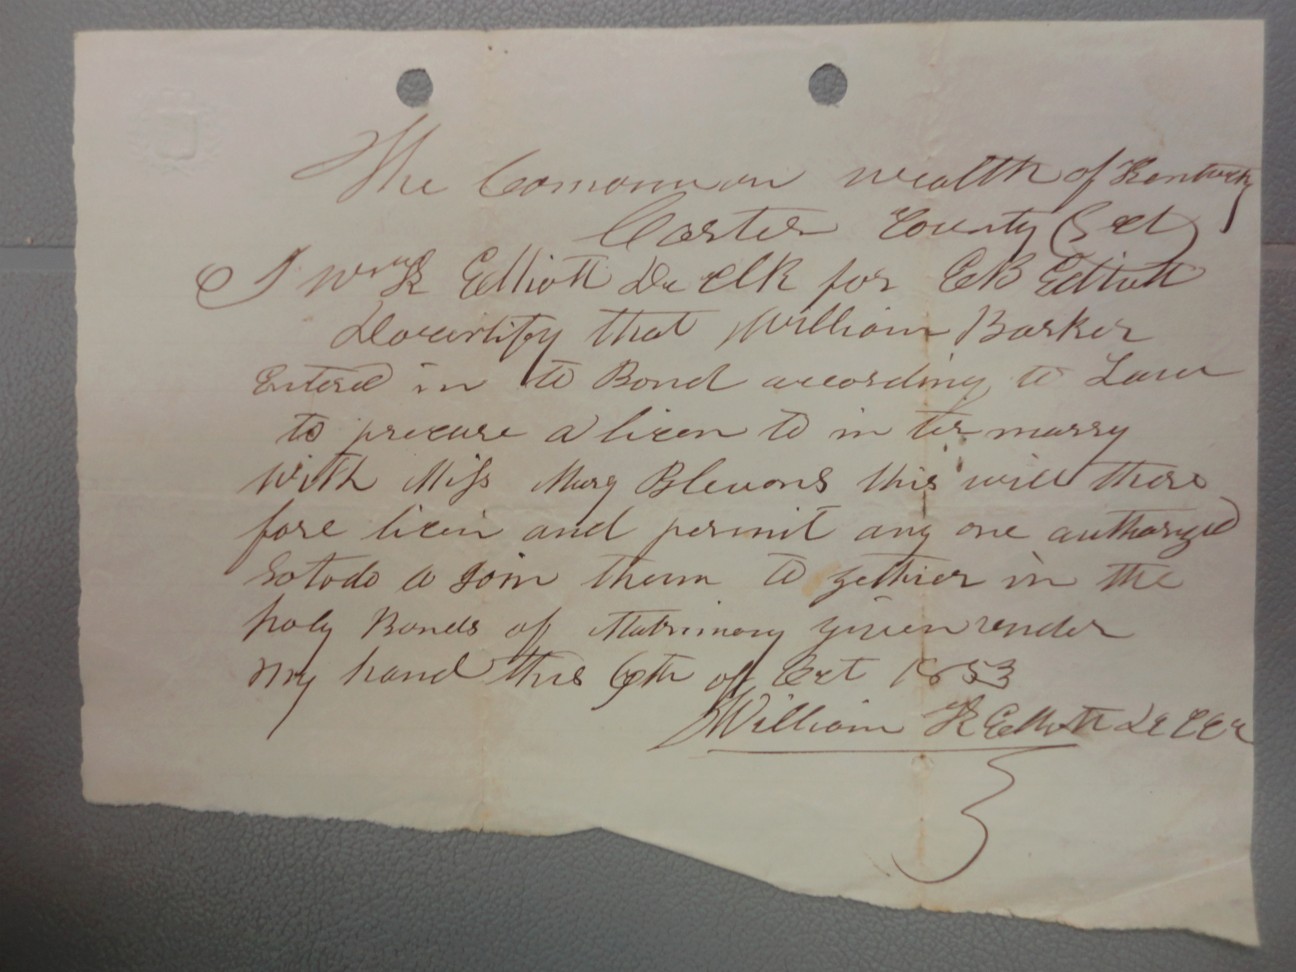 The Common wealth of Kentucky
Carter County Sct
I Wm K Elliott De Clk for E B Elliott
Do certify that William Barker
Entered in to Bond according to Law
to precure a licen to in ter marry
With Miss Mary Blevons this will there
fore licin and permit any one authorized
So to do to Join them to gethier in the
holy Bonds of Matrimony given under
my hand this 6th of Oct 1853
William K Elliott